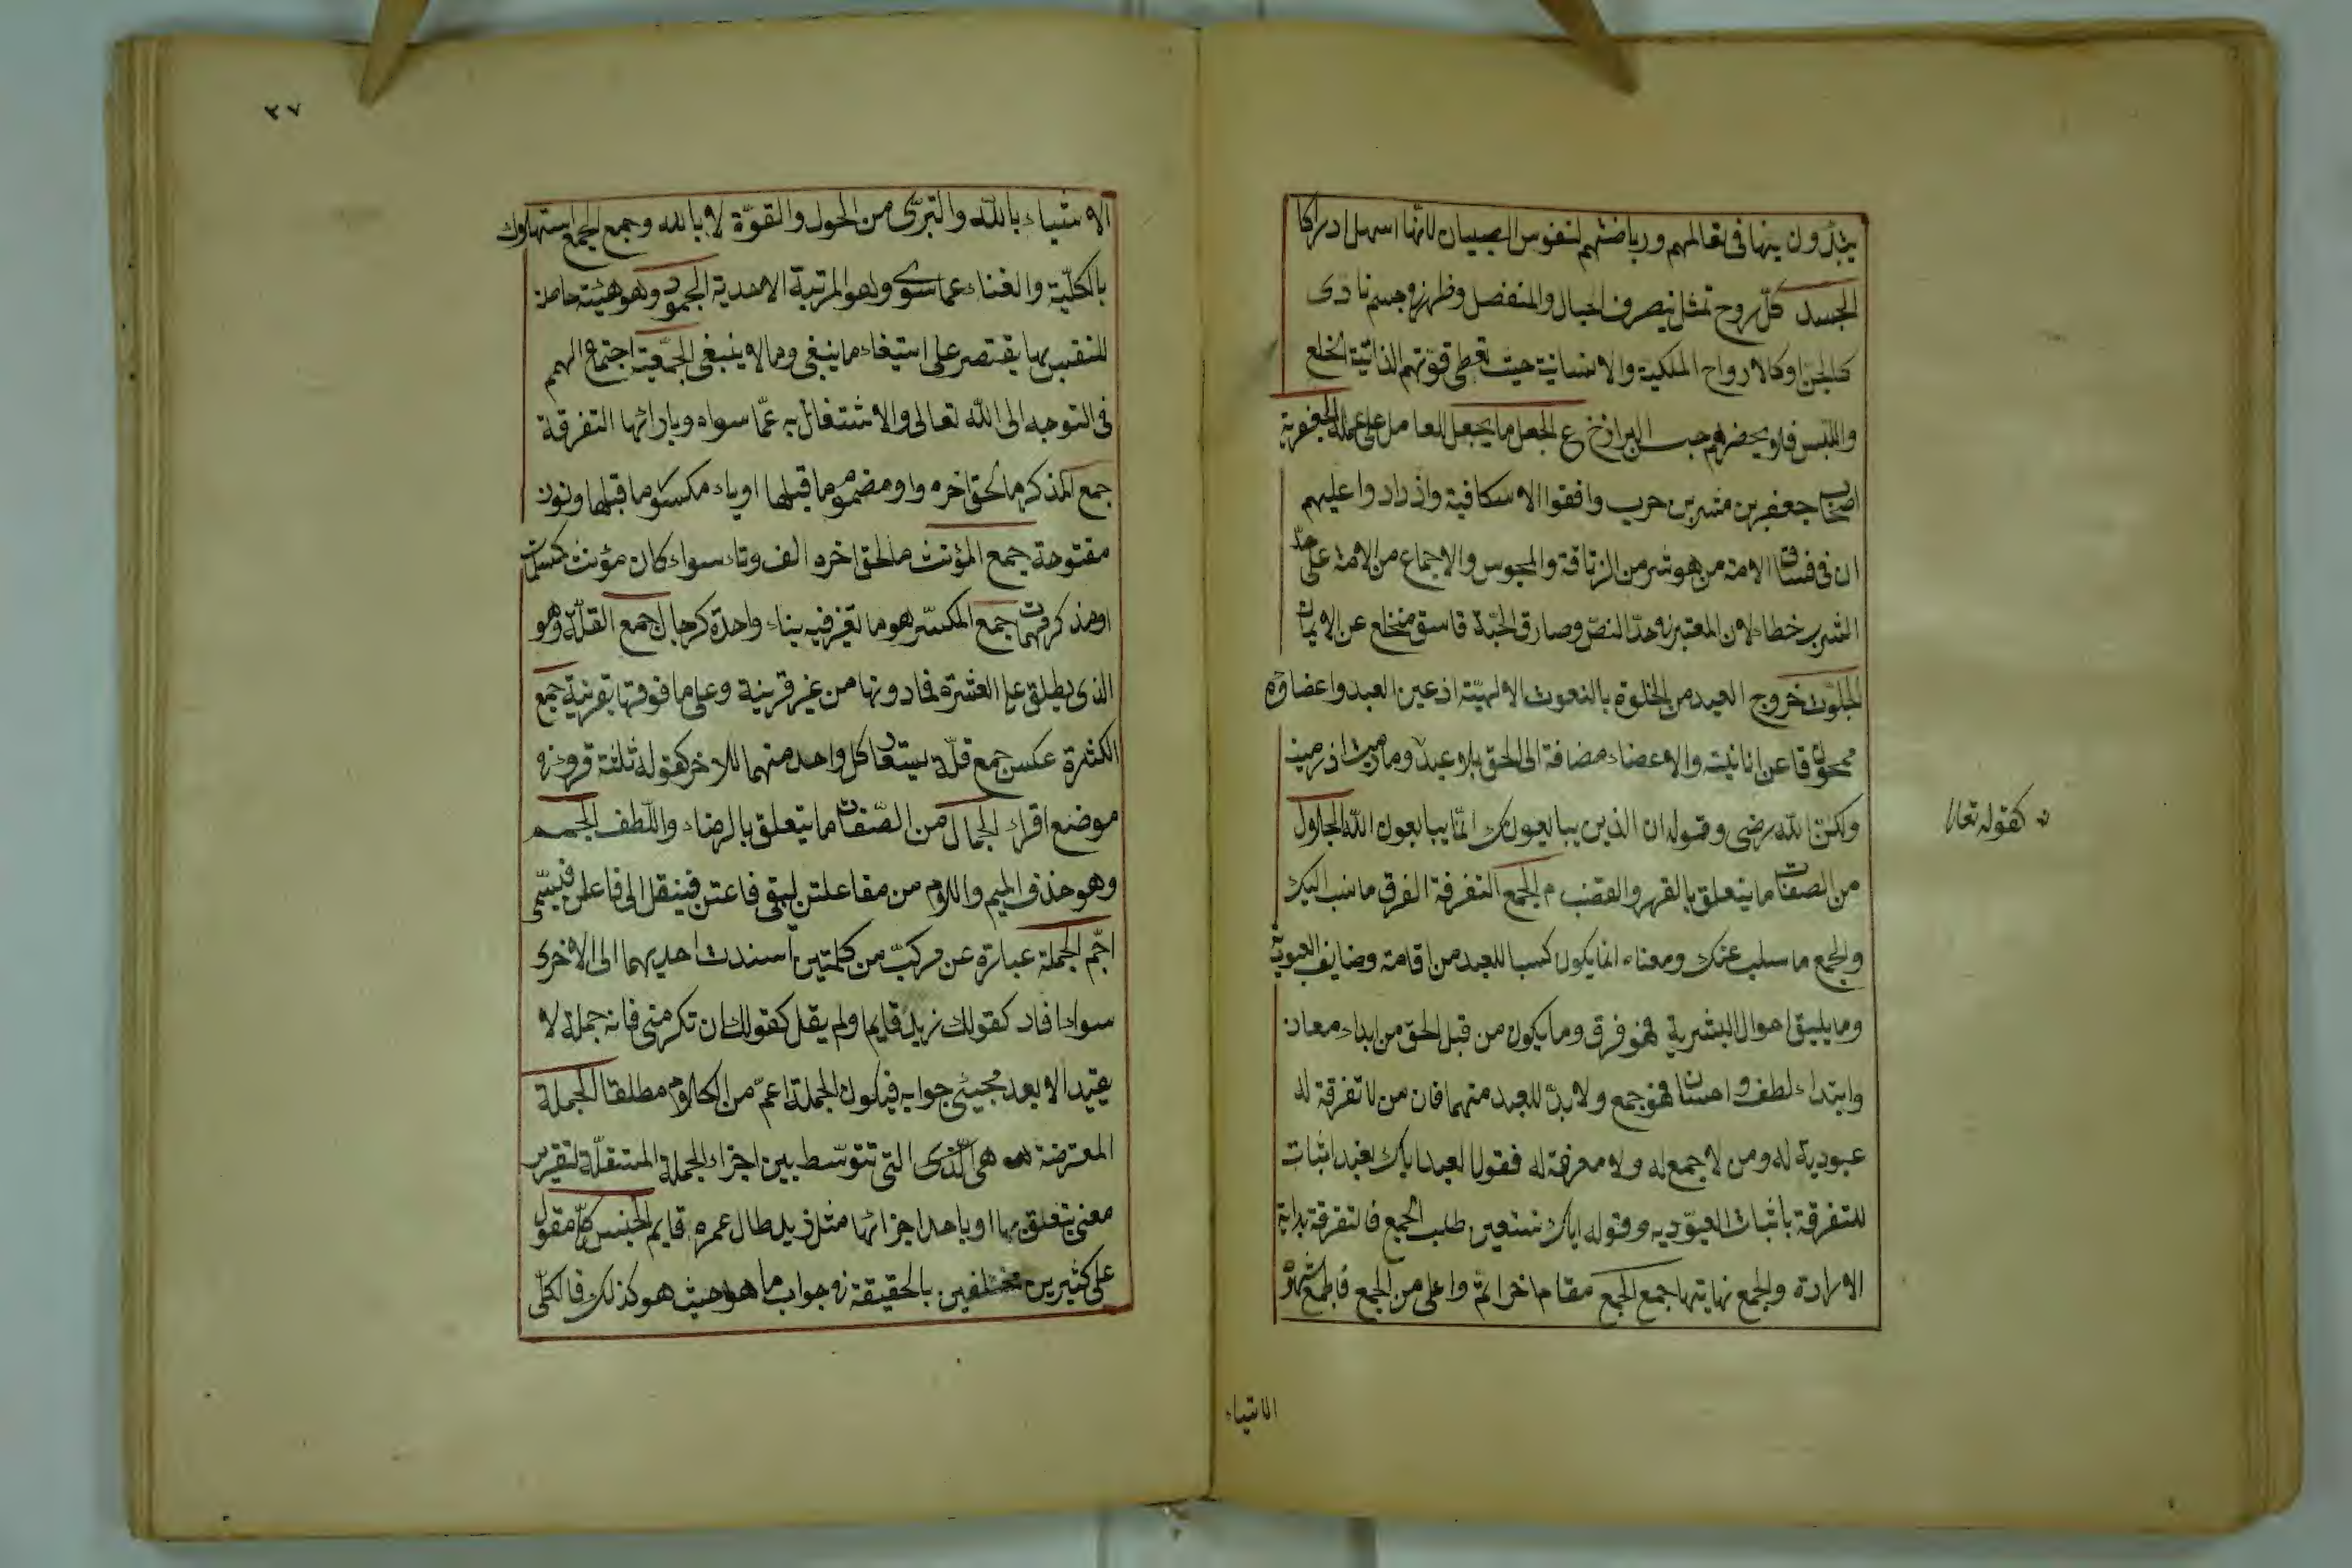 يبتدؤن بها فى تعاليمهم ورياضتهم لنفوس الصبيان لانها اسهل ادراكا
الجسد كل روح تمثل بتصرف الخيال والمنفصل وظهر فى جسم نادى
كالجن او كالارواح الملكية والانسانية حيث تعطى قوتهم الذاتية الخلع
واللبس فلا يحضرهم حبس البرازخ ع الجعل ما يجعل للعامل على عمله الجعفرية
اصحاب جعفر بن مشر بن حرب وافقوا الاسكافية وازدادوا عليهم
ان فى فساق الامة من هو شر من الزنادقة والمجوس والاجماع من الامة على حد
الشرب خطاء لان المعتبر فى حد النص وصارق الحبة فاسق منخلع عن الايمان
الجلوت خروج العبد من الخلوة بالنعوت الالهية اذ عين العبد واعضاؤه
ممحوة عن انانيت والاعضاء مضافة الى الحق بلا عبد وما رميت اذ رميت
ولكن الله رمى وقوله ان الذين يبايعونك انما يبايعون الله الجلال
من الصفات ما يتعلق بالقهر والغضب م الجمع التفرقة الفرق ما نسب اليك
والجمع ما سلب عنك ومعناه انما يكون كسبا للعبد من اقامة وضايف العبودية
وما يليق احوال البشرية فهو فرق وما يكون من قبل الحق من ابداء معان
وابتداء لطف واحسان فهو جمع ولا بد للعبد منهما فان من لا تفرقة له
عبودية له ومن لا جمع له ولا معرفة له فقول العبد اياك نعبد اثبات
للتفرقة باثبات العبودية وقوله اياك نستعين طلب الجمع فالتفرقة بداية
الارادة والجمع نهايتها جمع الجمع مقام اخر اتم واعلى من الجمع فالجمع شهود
كقوله تعالى
الاشياء
٣٧
الاشياء بالله والتبرى من الحول والقوة لا بالله وجمع الجمع استهلاك
بالكلية والفناء عما سوى وهو المرتبة الاحدية الجمود وهو هيئة حاصلة
للنفس بها يقتصر على استيفاء ما ينبغى وما لا ينبغى الجمعية اجتماع الهمم
فى التوجه الى الله تعالى والاشتغال به عما سواه وبازائها التفرقة
جمع المذكر ما لحق اخره واو مضموم ما قبلها او ياء مكسور ما قبلها ونون
مفتوحة جمع المؤنث ما لحق اخره الف وتاء سواء كان مؤنث كمسلمات
او مذكر كدريهمات جمع المكسر هو ما تغير فيه بناء واحدة كرجال جمع القلة وهو
الذى يطلق على العشرة فما دونها من غير قرينة وعلى ما فوقها بقرينة جمع
الكثرة عكس جمع قلة يستعار كل واحد منهما للاخر كقوله ثلثة قروء فى
موضع اقراء الجمال من الصفات ما يتعلق بالرضاء واللطف الجمم
وهو حذف الميم واللام من مفاعلتن ليبقى فاعتن فينقل الى فاعلن فيسمى
اجم الجملة عبارة عن مركب من كلمتين اسندت احديهما الى الاخرى
سواء افاد كقولك زيد قايم ولم يقل كقولك ان تكرمنى فانه جملة لا
يفيد الا بعد مجيئى جوابه فيكون الجملة اعم من الكلام مطلقا الجملة
المعترضة هى الذى التى تتوسط بين اجزاء الجملة المستقلة لتقرير
معنى يتعلق بها او باحد اجزائها مثل زيد طال عمره قايم الجنس كلى مقول
على كثيرين مختلفين بالحقيقة فى جواب ما هو حيث هو كذلك فالكلى